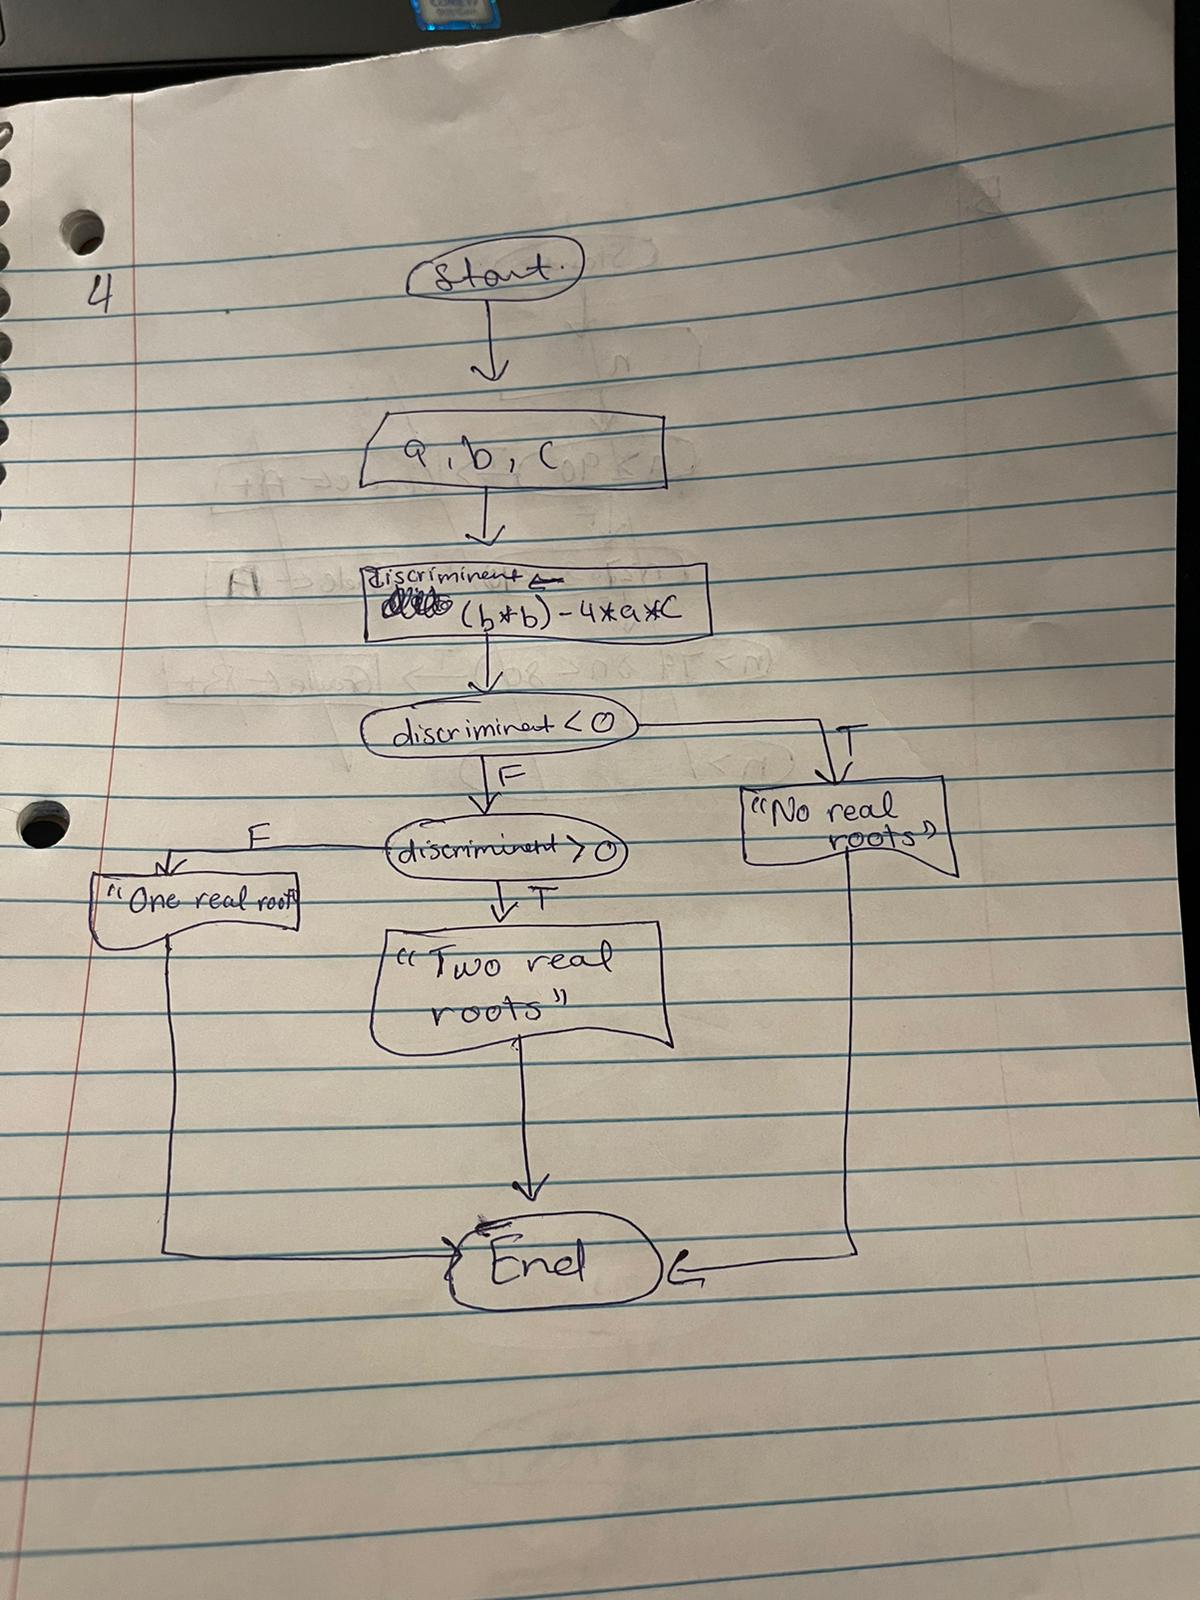 4
Start.
a, b, c
discriminent ←
(b*b) - 4*a*c
discriminent < 0
T
F
"No real
roots"
discriminent > 0
F
T
"One real root
"Two real
roots"
End